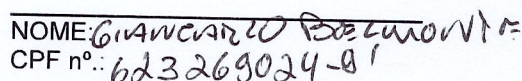 NOME: GIANCARLO BELMONTE
CPF nº.: 623269024-91